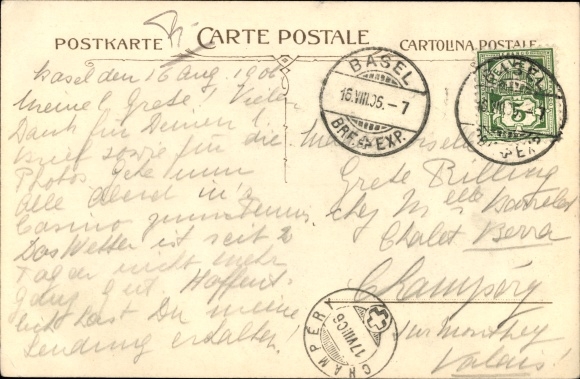 POSTKARTE CARTE POSTALE CARTOLINA POSTALE
Basel den 16 Aug. 1906
Meine l. Grete! Vielen
Dank für Deinen l.
Brief sowie für die
Photos. Gehe nun
alle Abend in's
Casino zum
Das Wetter ist seit 2
Tagen nicht mehr
ganz gut. Hoffent-
lich hast Du meine
Sendung erhalten!
BASEL
16.VIII.06.-7
BRF. EXP.
BASEL
BRF. EXP.
Mademoiselle
Grete Rilling
chez Mlle
Chalet Berra
Champéry
sur Monthey
Valais!
CHAMPÉRY
17.VIII.06